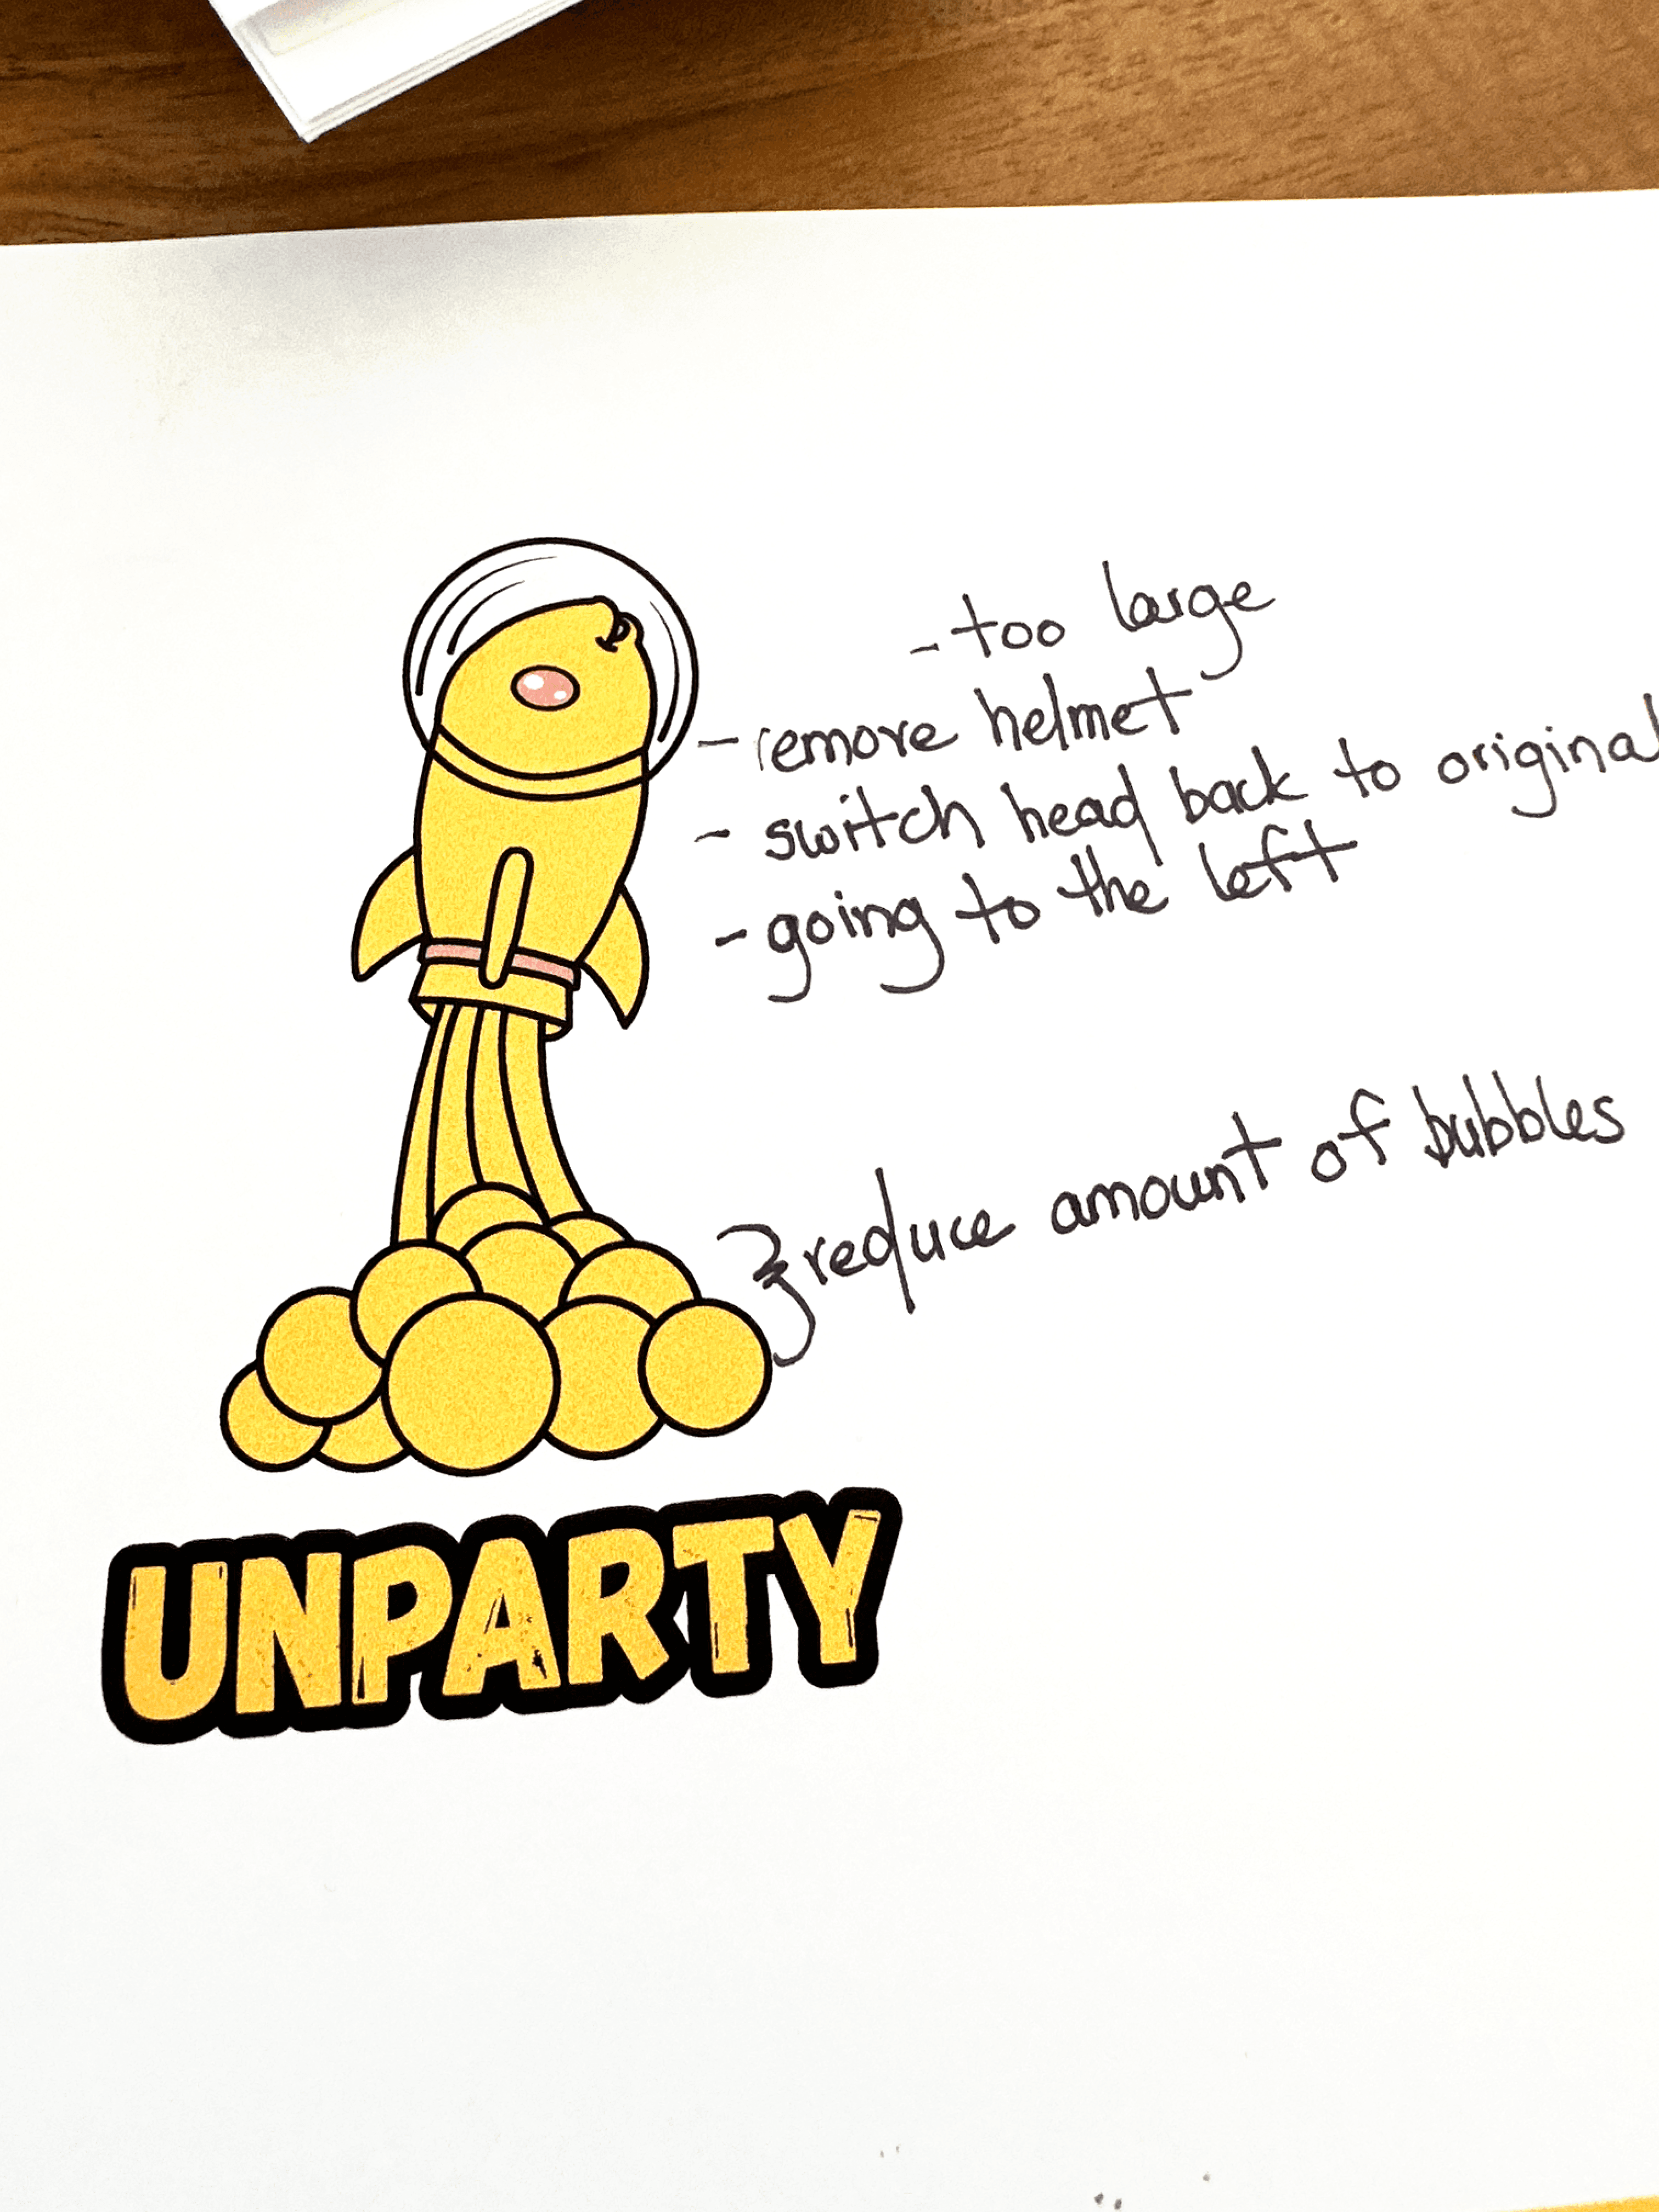 - too large
- remove helmet
- switch head back to original
- going to the left
reduce amount of bubbles
UNPARTY